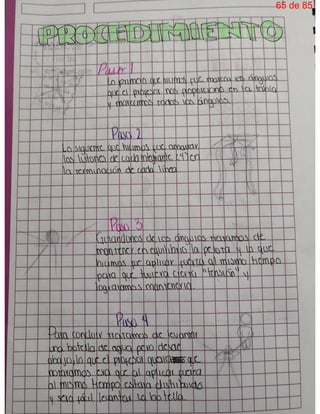 65 de 85
PROCEDIMIENTO
Paso 1
Lo primero que hicimos fue marcar los ángulos
que el profesor nos proporcionó en la tabla
y marcamos todos los ángulos.
Paso 2
Lo siguiente que hicimos fue amarrar
los listones de cada integrante (4) en
la terminación de cada línea
Paso 3
Guiandonos de los ángulos tratamos de
mantener en equilibrio la pelota y lo que
hicimos fue aplicar fuerza al mismo tiempo
para que tuviera cierta "tensión" y
lograramos mantenerla.
Paso 4
Para concluir tratamos de levantar
una botella de agua pero desde
abajo, lo que el profesor queria que
notaramos era que al aplicar fuerza
al mismo tiempo estaba distribuida
y sería fácil levantar la botella.